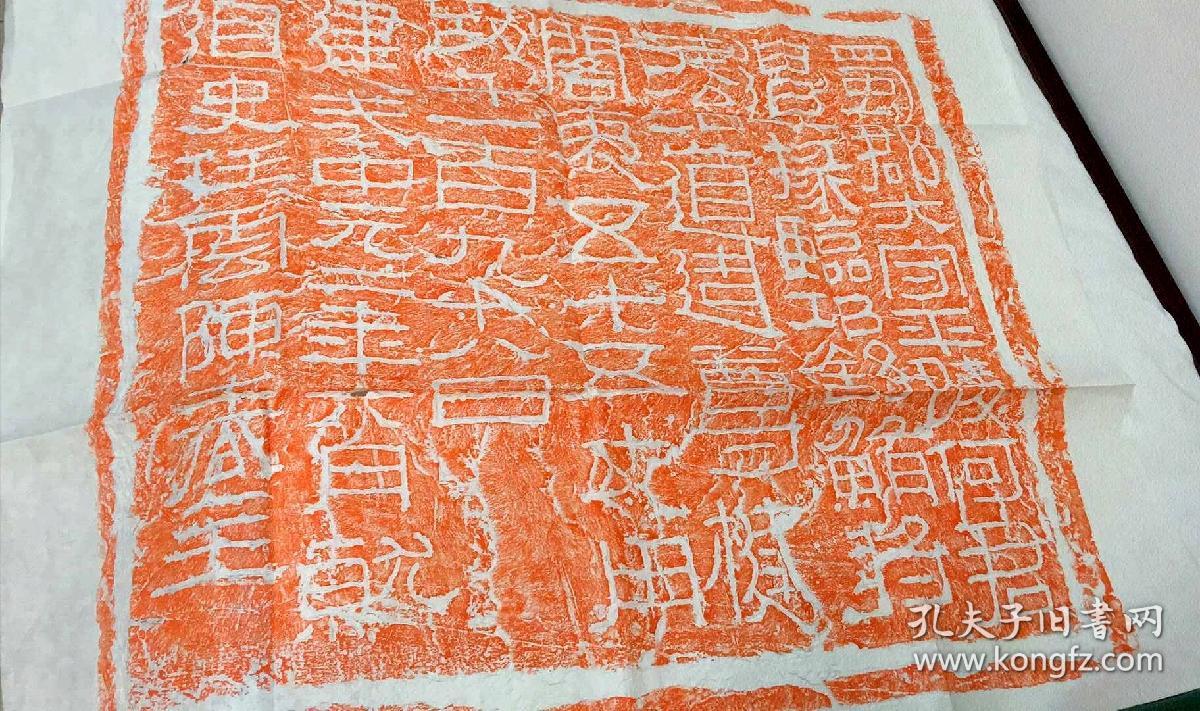 蜀郡大守平陵何君
遣掾臨邛舒鮪将
徒治道造尊楗
閣袤五十五丈用
功千一百九十八日
建武中元二年六月就
道史任雲陳春主
孔夫子旧書网
www.kongfz.com